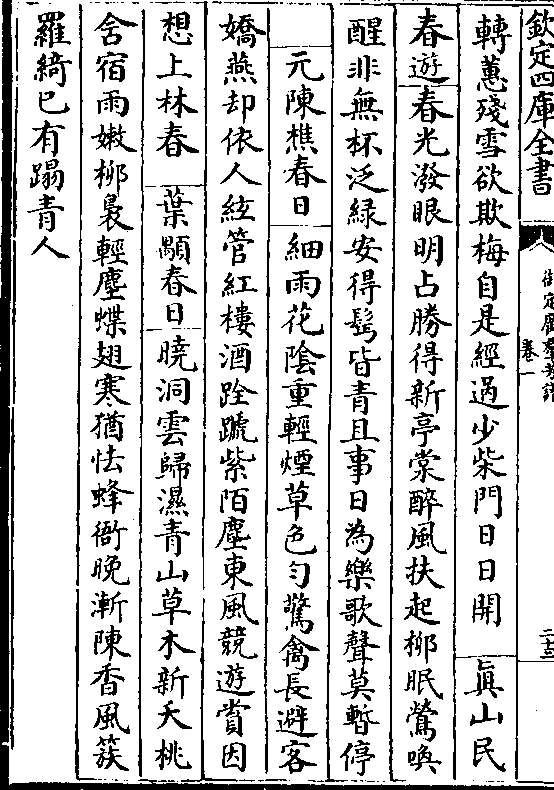 欽定四庫全書
御定廣羣芳譜
卷一
二十三
轉蕙殘雪欲欺梅自是經過少柴門日日開 真山民
春遊春光潑眼明占勝得新亭棠醉風扶起柳眠鶯喚
醒非無杯泛綠安得髩皆青且事日為樂歌聲莫暫停
元陳樵春日細雨花陰重輕煙草色勻驚禽長避客
嬌燕却依人絃管紅樓酒跧蹏紫陌塵東風競遊賞因
想上林春 葉顒春日曉洞雲歸濕青山草木新夭桃
舍宿雨嫩柳裊輕塵蝶翅寒猶怯蜂衙晚漸陳香風簇
羅綺已有蹋青人